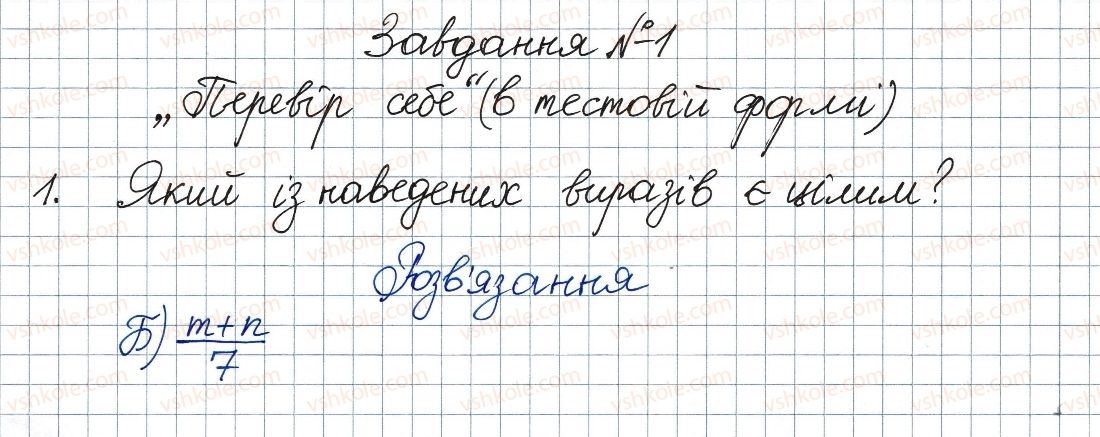 Завдання №1
„Перевір себе“ (в тестовій формі)
1. Який із наведених виразів є цілим?
Розв'язання
Б) m+n
7